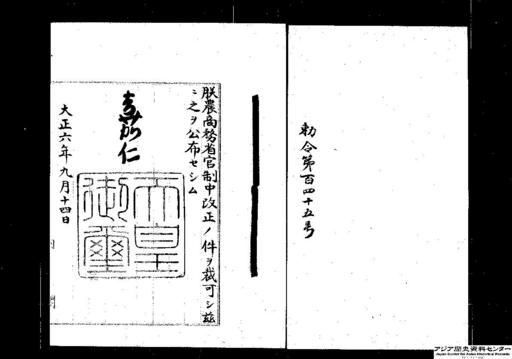 勅令第百四十五号
朕農商務省官制中改正ノ件ヲ裁可シ茲
ニ之ヲ公布セシム
嘉仁
天皇御璽
大正六年九月十四日
アジア歴史資料センター
Japan Center for Asian Historical Records